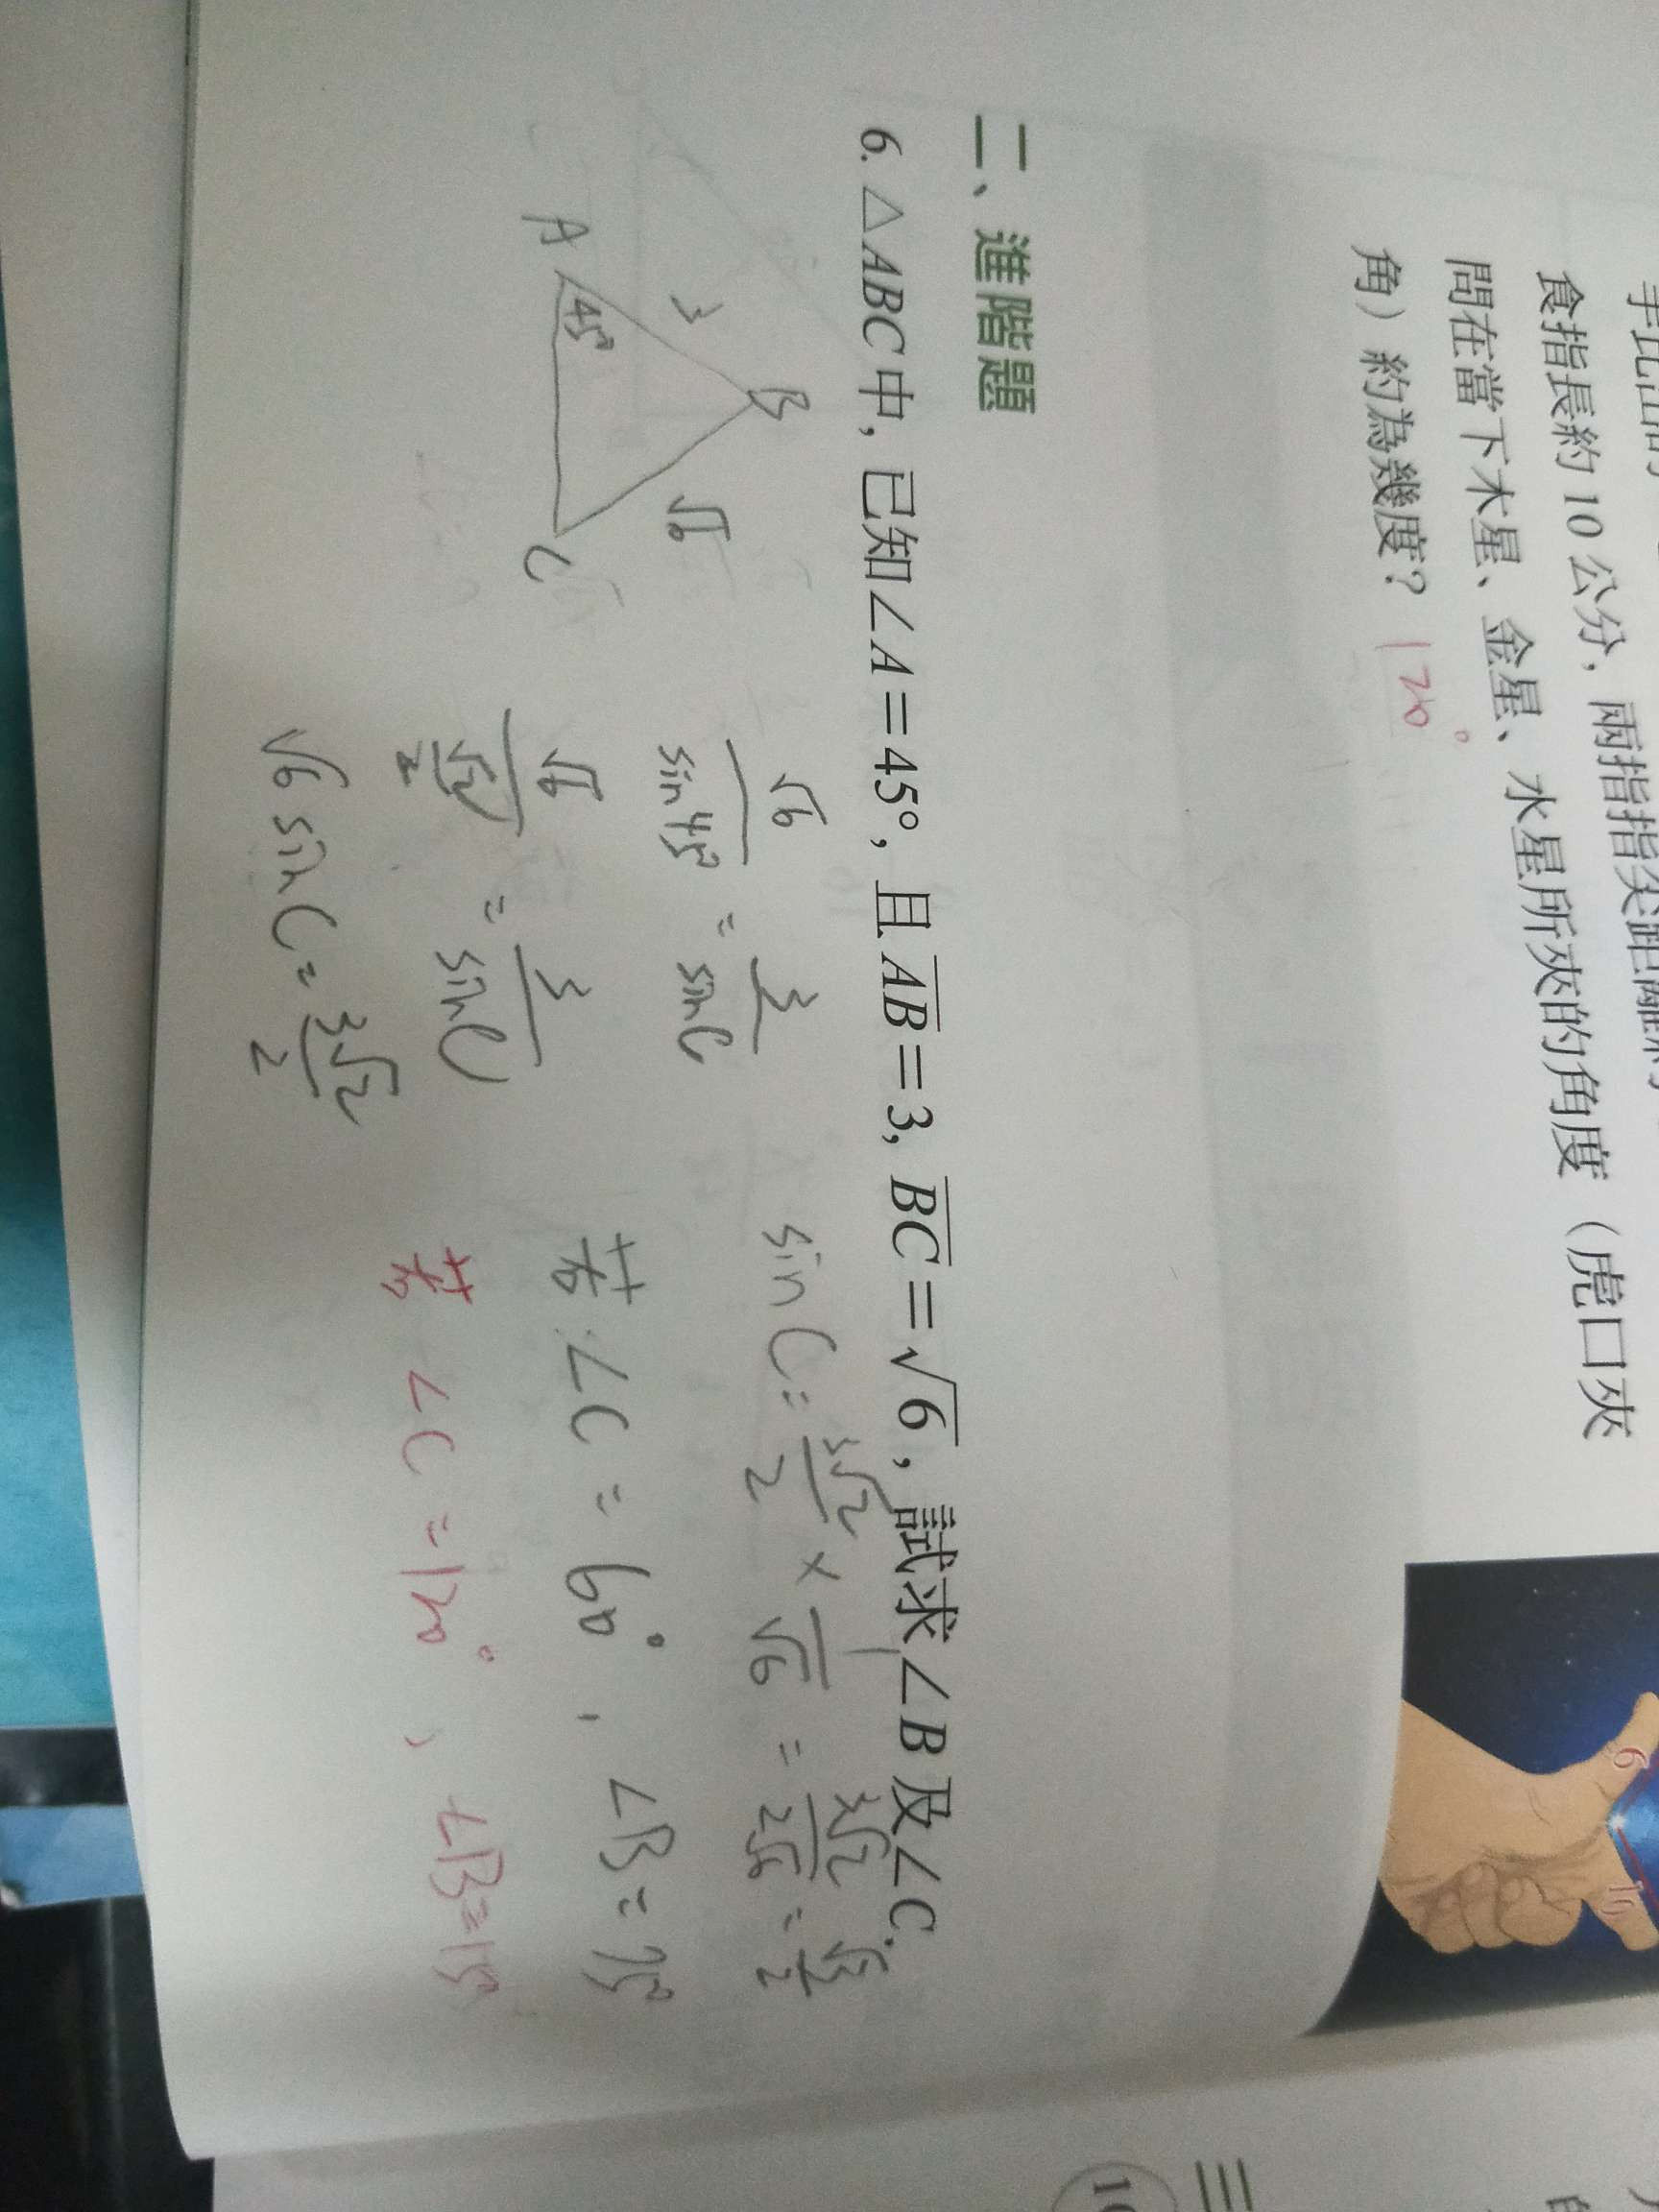 食指長約 10 公分，兩指指尖距離約
問在當下木星、金星、水星所夾的角度（虎口夾
角）約為幾度？ 120°
6
10
二、進階題
6. △ABC中，已知∠A=45°，且AB=3，BC=√6，試求∠B及∠C.
A 45° 3 B √6 C
√6/sin45° = 3/sinC
√6/(√2/2) = 3/sinC
√6 sinC = 3√2/2
sinC = 3√2/2 × 1/√6 = 3√2/2√6 = √3/2
若∠C = 60°, ∠B = 75°
若∠C = 120°, ∠B = 15°
三
10